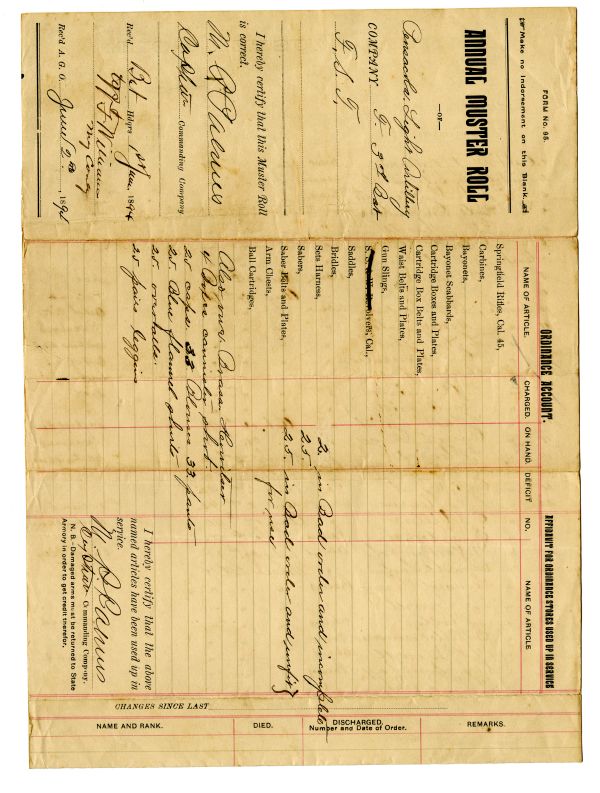 FORM No. 95.
Make no Indorsement on this Blank.
ANNUAL MUSTER ROLL
—OF—
Pensacola Light Artillery
COMPANY F. 3d Bat
F. S. T.
I hereby certify that this Muster Roll
is correct.
Captain Commanding Company
Rec'd Hdqrs 1st June 1894
Rec'd A. G. O. June 2nd, 189
ORDNANCE ACCOUNT.
NAME OF ARTICLE. CHARGED. ON HAND. DEFICIT
Springfield Rifles, Cal. 45,
Carbines,
Bayonets,
Bayonet Scabbards,
Cartridge Boxes and Plates,
Cartridge Box Belts and Plates,
Waist Belts and Plates,
Gun Slings,
Cal.,
Saddles,
Bridles,
Sets Harness, 2. in Bad order and incomplete
Sabers, 25.
Saber Belts and Plates, 25. in Bad order and unfit
Arm Chests, for use
Ball Cartridges,
Also two Brass Howitzer
4 canister shot.
20 caps 33 Blouses 33 pants
20 Blue flannel shirts
20 overalls.
25 pairs leggins
AFFIDAVIT FOR ORDNANCE STORES USED UP IN SERVICE
NO. NAME OF ARTICLE
I hereby certify that the above
named articles have been used up in
service.
Captain Commanding Company.
N. B.—Damaged arms must be returned to State
Armory in order to get credit therefor.
CHANGES SINCE LAST
NAME AND RANK. DIED. DISCHARGED. Number and Date of Order. REMARKS.